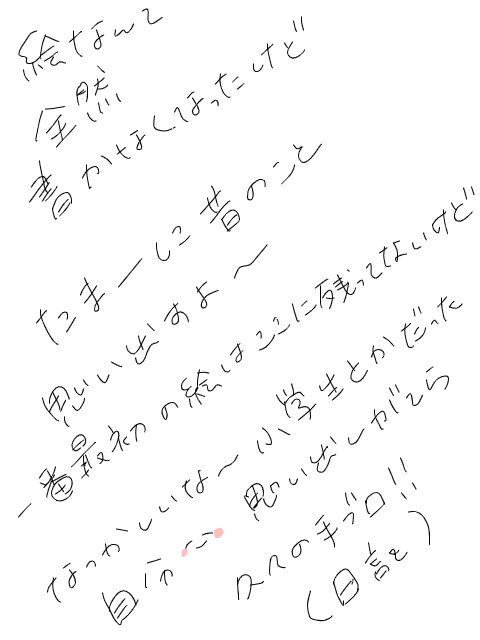 絵なんて
全然
書かなくなったけど
たまーに昔のこと
思い出すよ～
一番最初の絵はここに残ってないけど
なつかしいな～小学生とかだった
自分 思い出しがてら
久々の手ブロ!!
(日記)